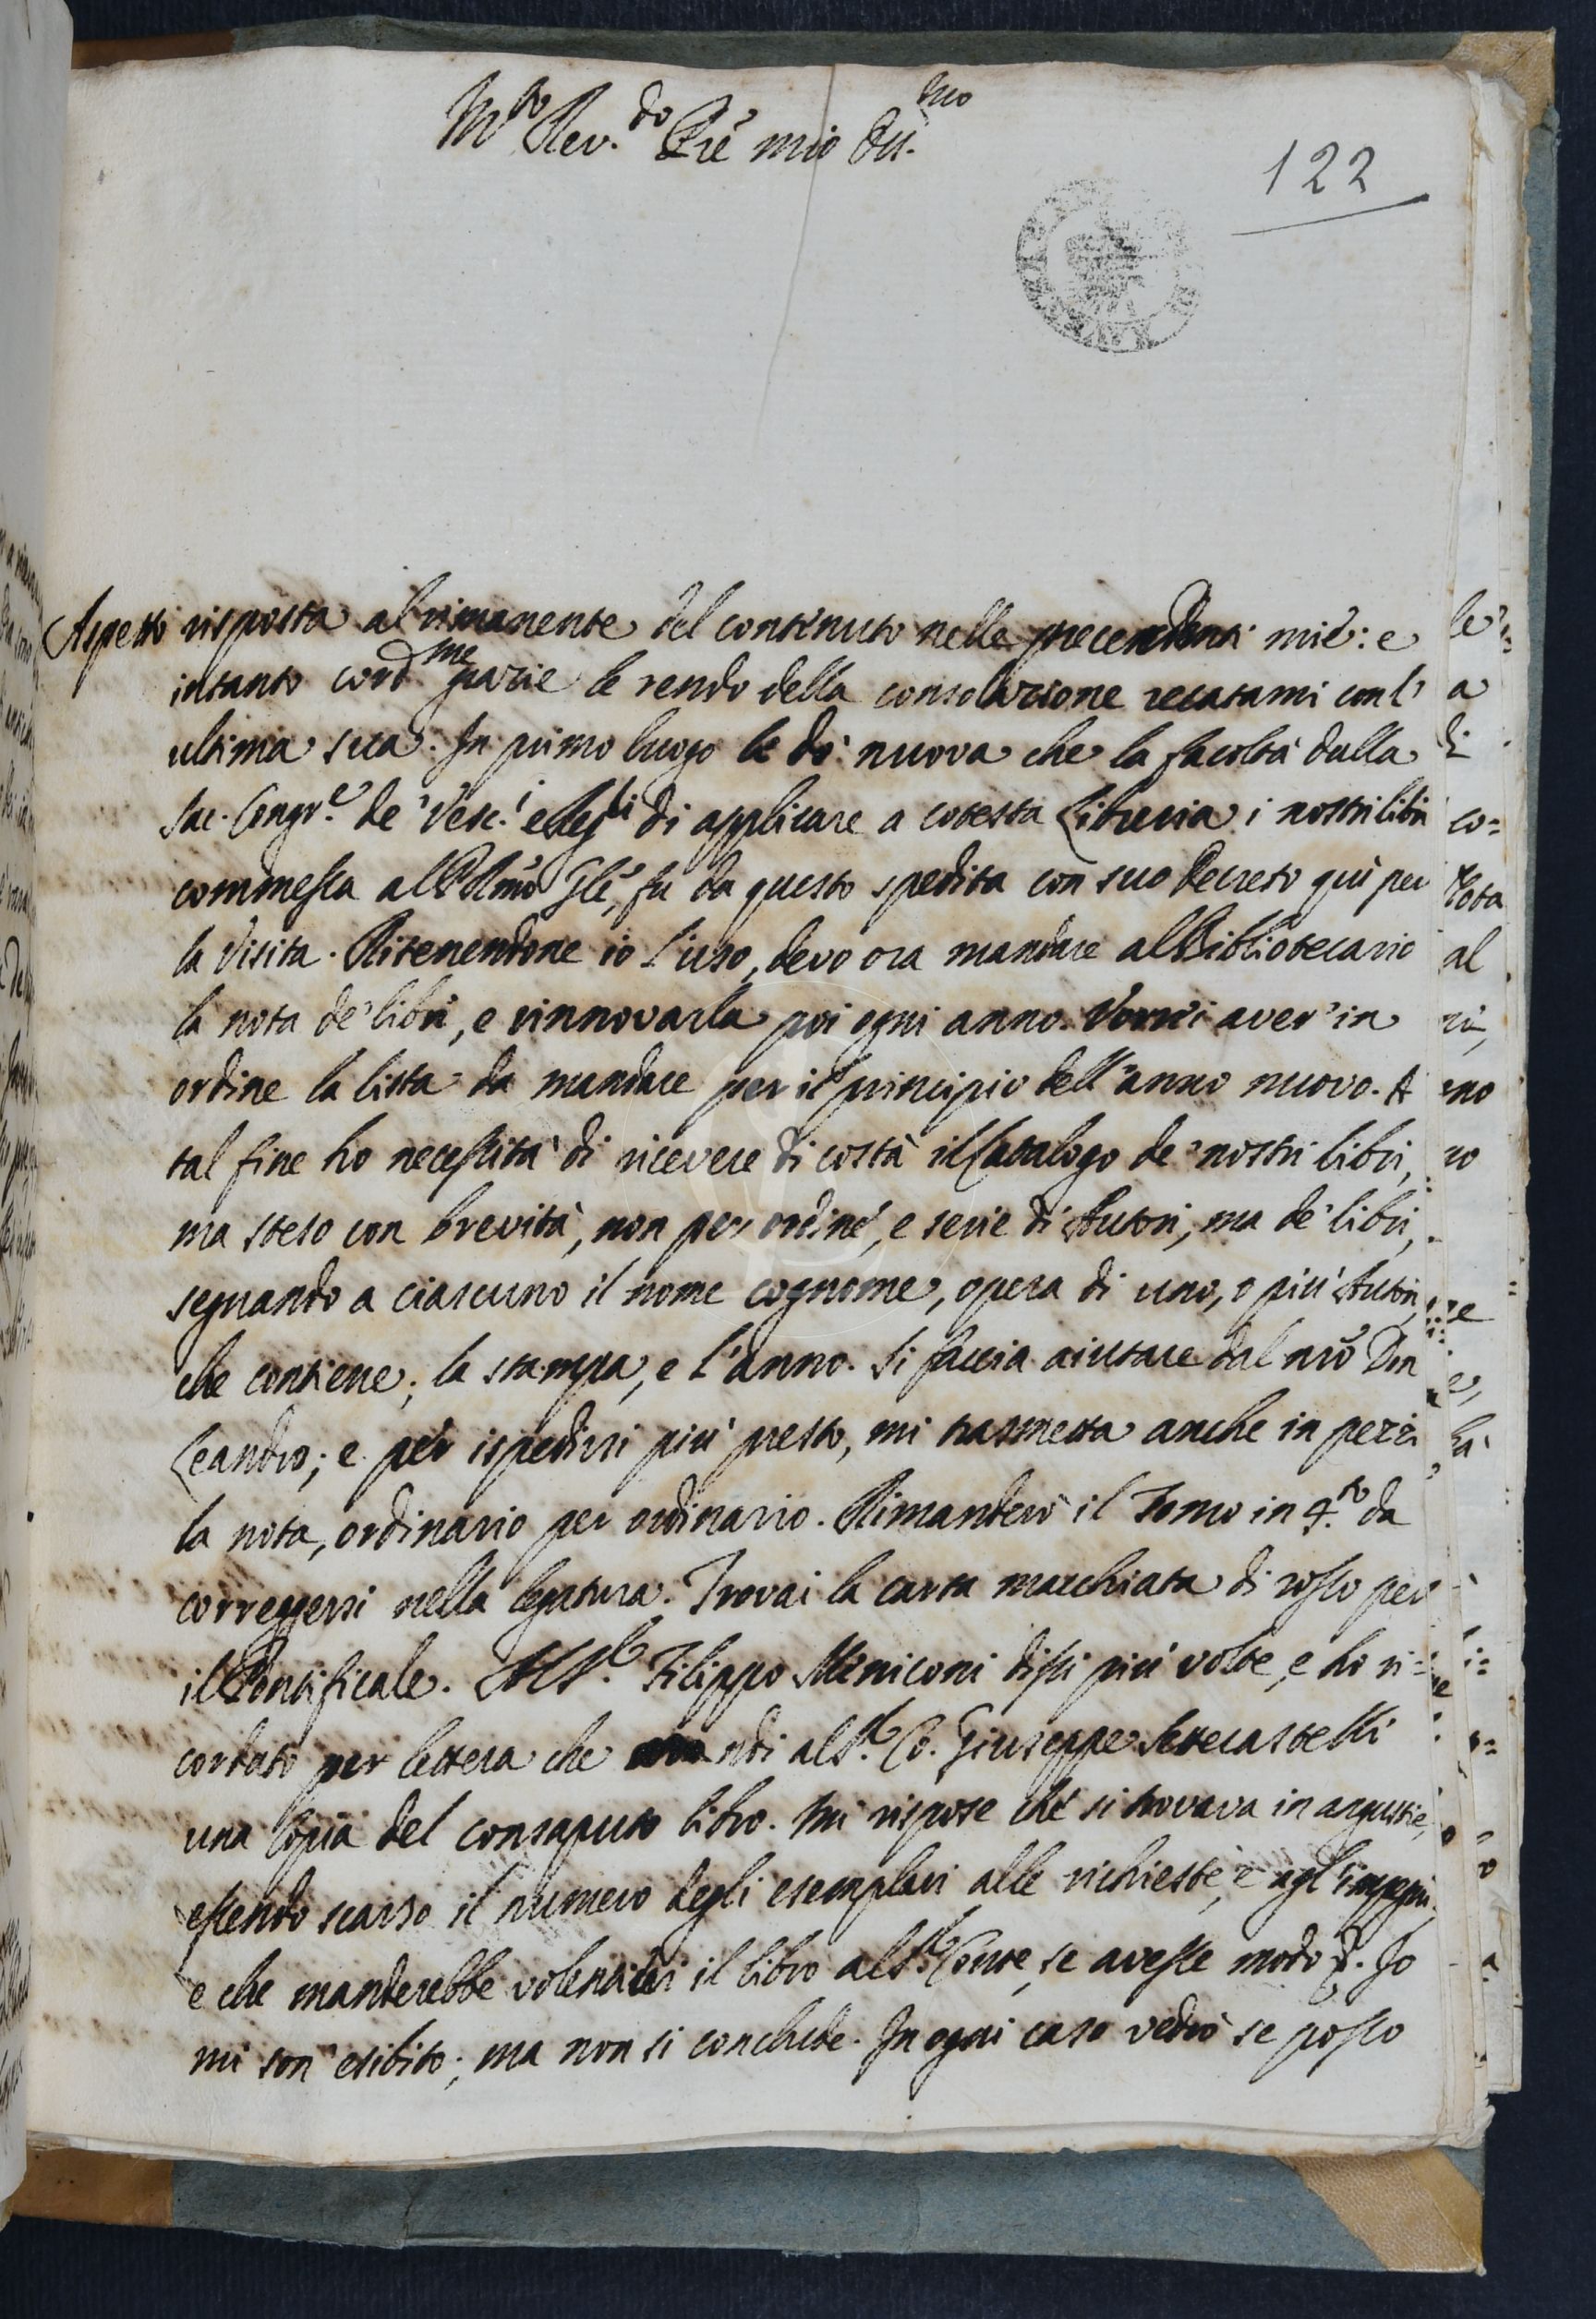 M.to Rev.do Pre mio Oss.mo
122
Aspetto risposta al rimanente del contenuto nelle precedenti mie: e
intanto cord.me grazie le rendo della consolazione recatami con l'
ultima sua. In primo luogo le dò nuova che la facoltà dalla
Sac. Congr.e de' Vesc.i e Reg.ri di applicare a cotesta Libreria i nostri libri
commessa al P. Rmo Gle, fu da questo spedita con suo decreto quì per
la Visita. Ritenendone io l'uso, devo ora mandare al Bibliotecario
la nota de' libri, e rinnovarla poi ogni anno. Vorrei aver' in
ordine la lista da mandare per il principio dell'anno nuovo. A
tal fine ho necessità di ricevere di costà il Catalogo de' nostri libri,
ma steso con brevità, non per ordine, e serie di Autori, ma de' libri,
segnando a ciascuno il nome cognome, opera di uno, o più Autori,
che contiene; la stampa, e l'anno. Si faccia aiutare dal nro Don
Leandro; e per ispedirsi più presto, mi trasmetta anche in pezzi
la nota, ordinario per ordinario. Rimanderò il Tomo in 4.to da
correggersi nella legatura. Trovai la carta macchiata di rosso per
il Pontificale. Al S.r Filippo Meniconi dissi più volte, e ho ri=
cordato per lettera che mandi al S.r Co. Giuseppe Settecastelli
una Copia del consaputo libro. Mi rispose che si trovava in angustie,
essendo scarso il numero degli esemplari alle richieste, e agl'impegni,
e che manderebbe volentieri il libro al S.r Conte, se avesse modo &. Io
mi son' esibito; ma non si conclude. In ogni caso vedrò se posso